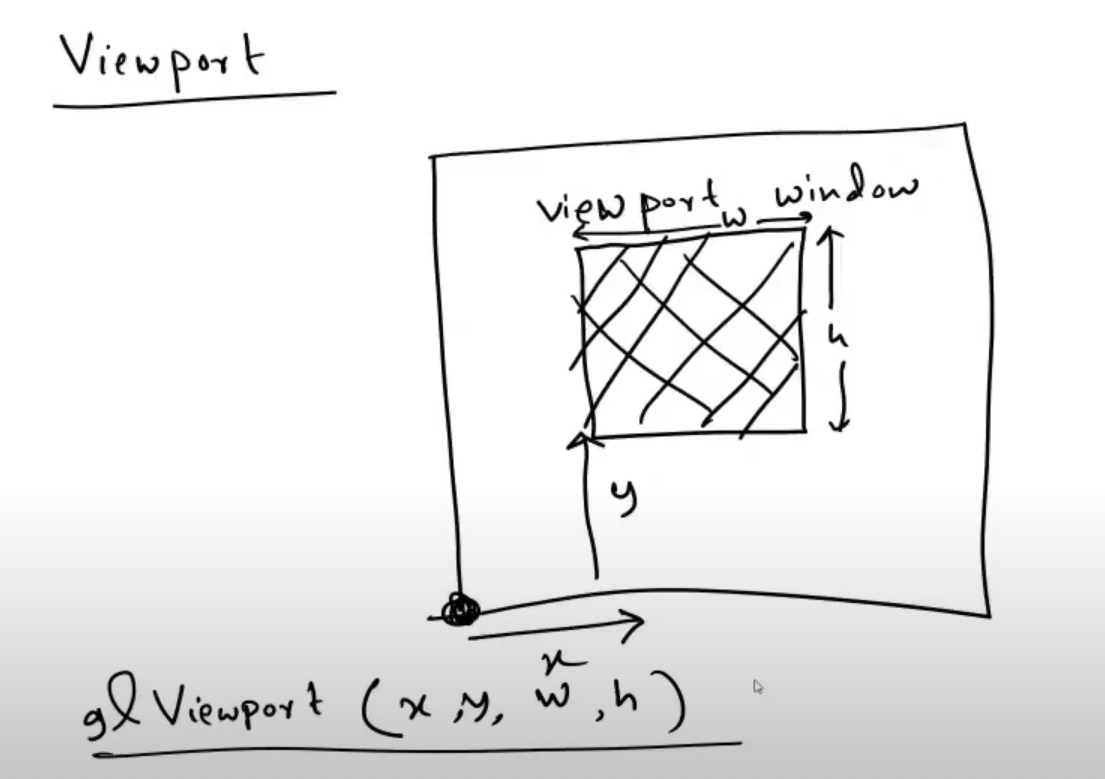 Viewport
viewport window
w
h
y
x
glViewport (x,y, w,h)